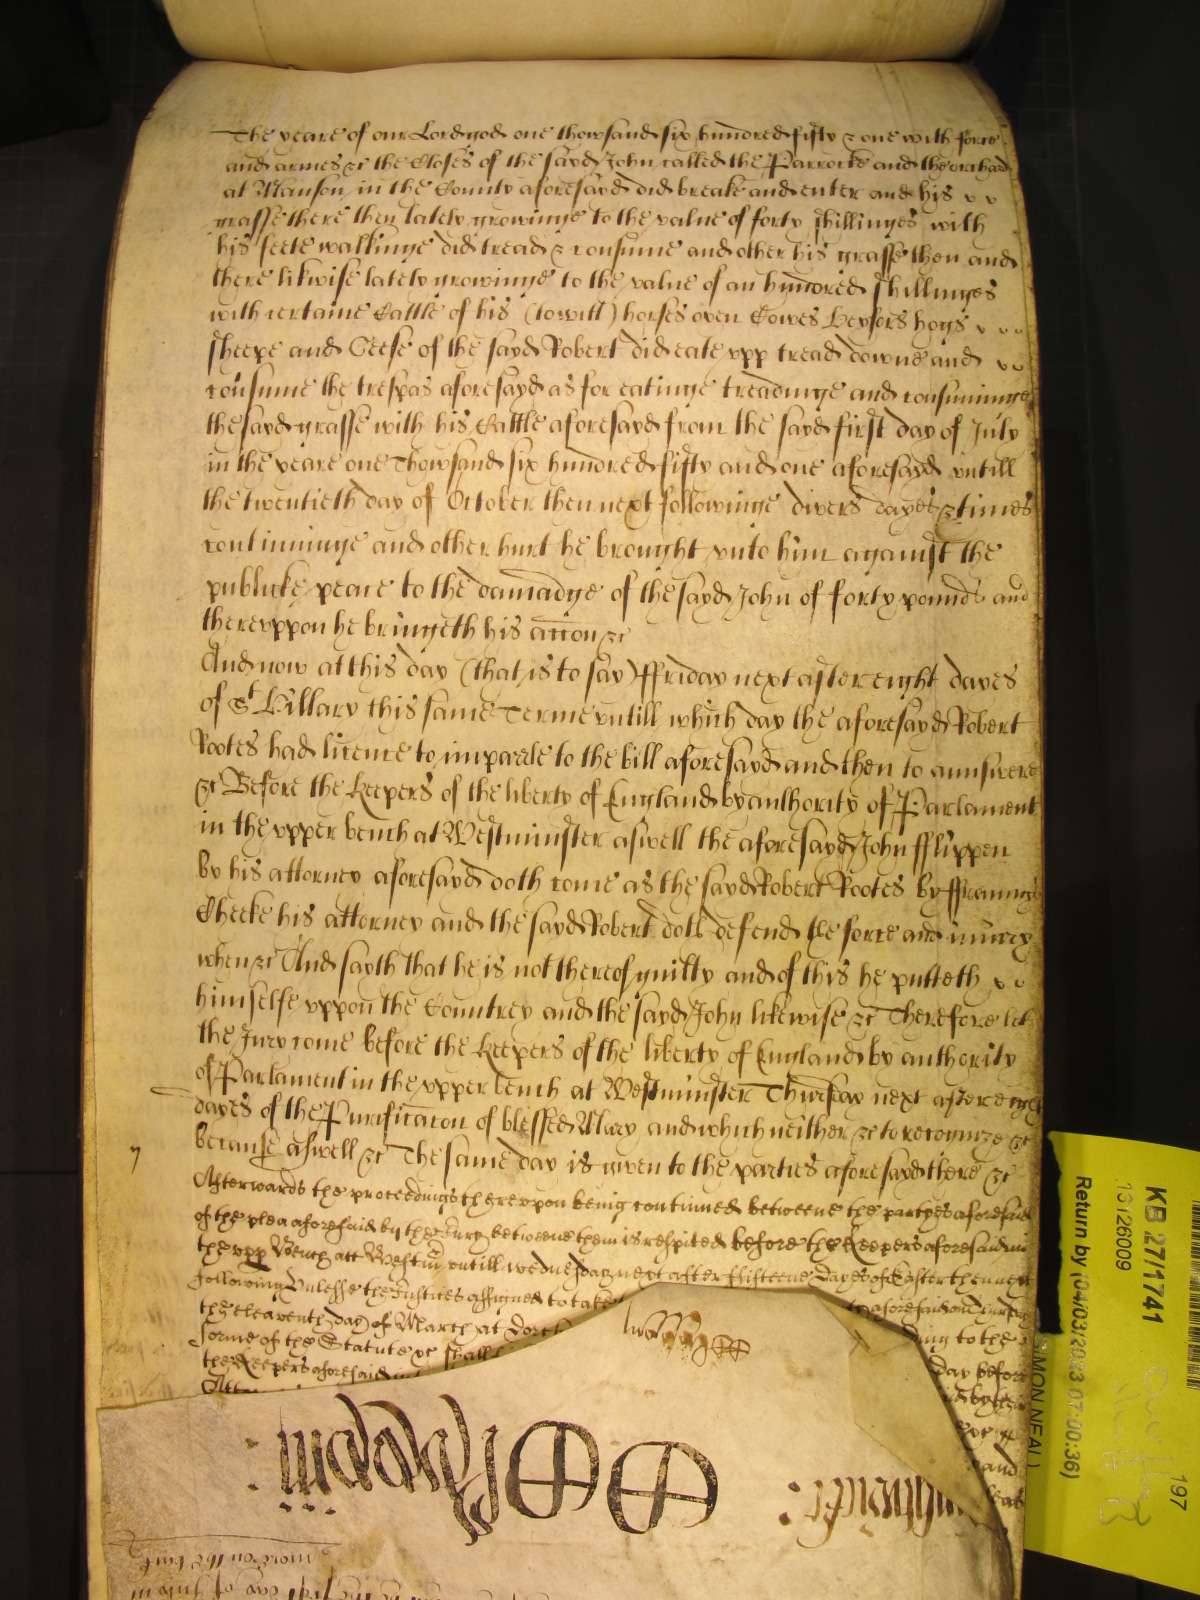 The yeare of our Lord god one thowsand six hundred fifty & one with force
and armes &c the Closes of the sayd John called the Parrocke and the orchard
at Manson in the County aforesayd did breake and enter and his
grasse there then lately growinge to the value of forty shillinges with
his feete walkinge did tread & consume and other his grasse then and
there likwise lately growinge to the value of an hundred shillinges
with certaine Cattle of his (to witt) horses oxen Cowes heyfors hogs
sheepe and Geese of the sayd Robert did eate upp tread downe and
consume the trespas aforesayd as for eatinge treadinge and consuminge
the sayd grasse with his Cattle aforesayd from the sayd first day of July
in the yeare one Thowsand six hundred fifty and one aforesayd untill
the twentieth day of October then next followinge divers dayes & times
continuinge and other hurt he brought unto him against the
publicke peace to the damadge of the sayd John of forty pounds and
thereuppon he bringeth his accon &c
And now at this day (that is to say) ffriday next after eight dayes
of St Hillary this same Terme untill which day the aforesayd Robert
Rootes had licence to imparle to the bill aforesayd and then to aunswere
&c Before the Keepers of the liberty of England by authority of Parlament
in the upper bench at Westminster aswell the aforesayd John fflippen
by his attorney aforesayd doth come as the sayd Robert Rootes by ffrauncis
Cheeke his attorney and the sayd Robert doth defend the force and iniury
when &c And sayth that he is not thereof guilty and of this he putteth
himselfe uppon the Countrey and the sayd John likewise &c Therefore let
the Jury come before the Keepers of the liberty of England by authority
of Parlament in the upper bench at Westminster Thursday next after eight
dayes of the Purificacon of blessed Mary and which neither &c to recognize &c
because aswell &c The same day is given to the parties aforesayd there &c
Afterwards the proceedings thereupon being continued betweene the partyes aforesaid
of the plea aforesaid by the Jury betweene them is respited before the Keepers aforesaid in
the upp Bench att Westmr untill wednesday next after fifteene Dayes of Easter then next
following Unlesse the Justices assigned to take
to aforesaid
the eleaventh day of March at Dorch
ding to the
forme of the Statute &c shall
Day before
the Keepers aforesaid in
and
KB 27/1741
131260009
Return by (04/03/2023 07:00:36)
SIMON NEAL)
197